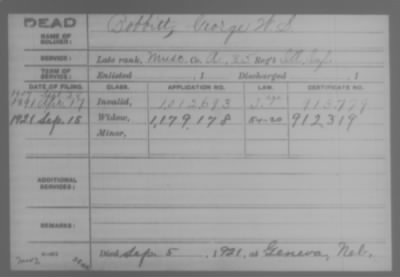 DEAD
Bobbitt, George W. S.
NAME OF SOLDIER:
SERVICE: Late rank, Musc. Co. A, 25 Reg't Ill. Inf.
TERM OF SERVICE: Enlisted , 1 Discharged , 1
DATE OF FILING. CLASS. APPLICATION NO. LAW. CERTIFICATE NO.
1891 Apr. 17 Invalid, 1,012,693
1921 Sep. 15 Widow, 1,179,178 912,319
Minor,
ADDITIONAL SERVICES:
REMARKS:
Died Sep. 5, 1921, at Geneva, Neb.